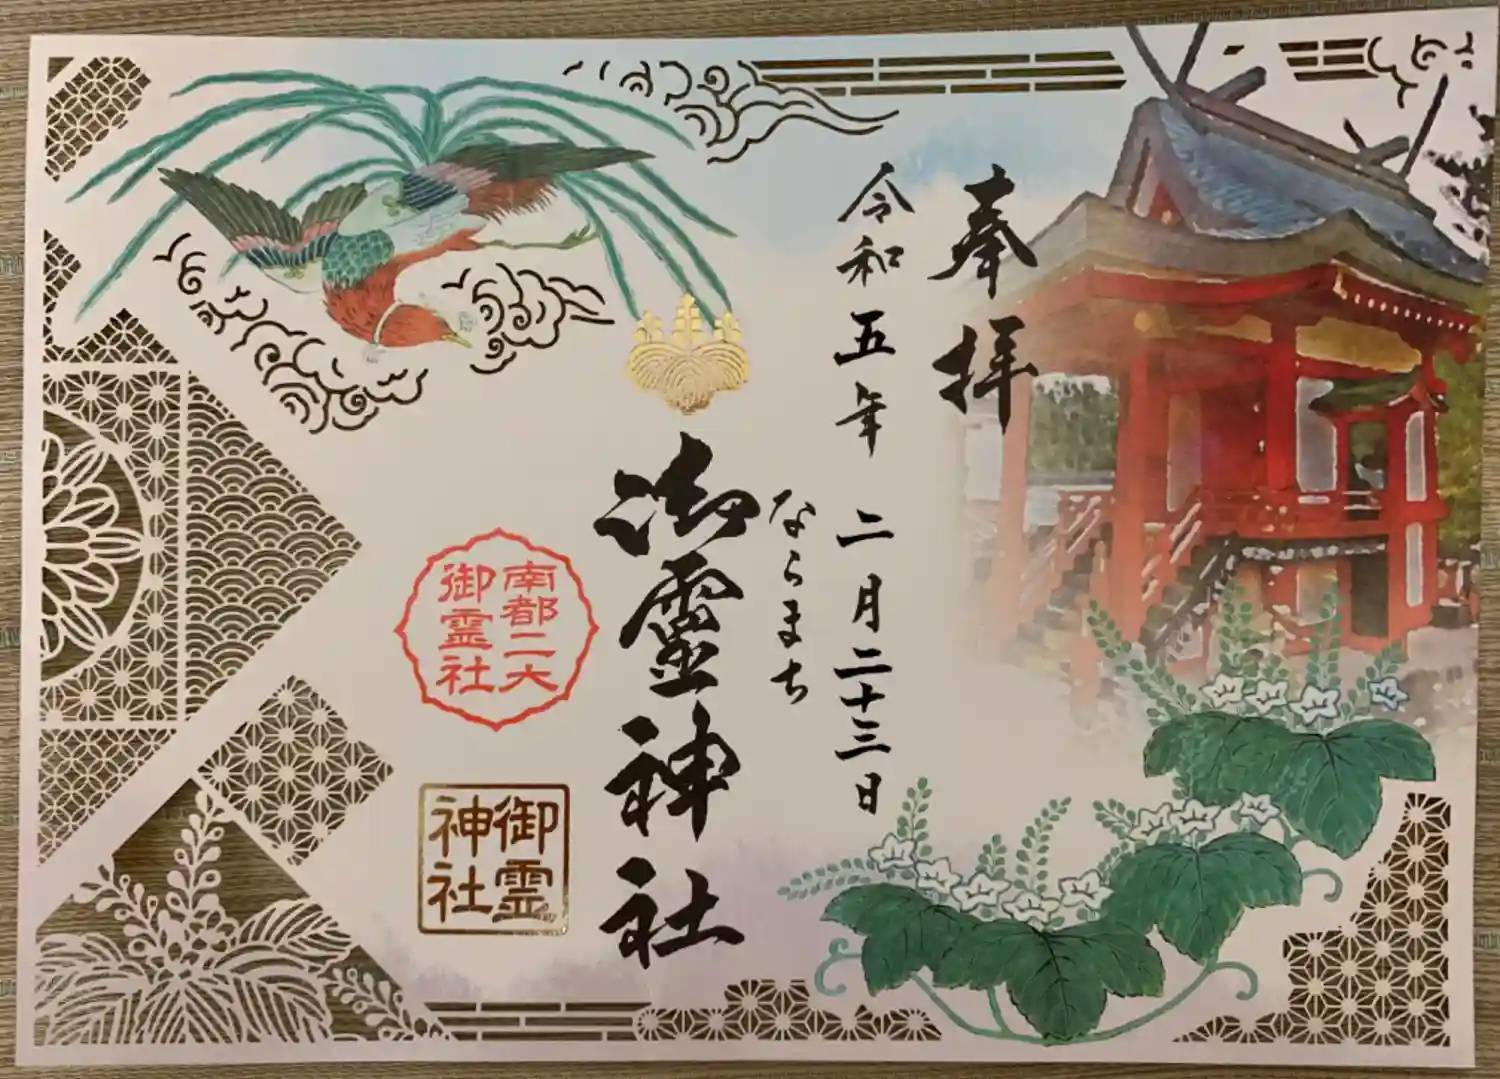 奉拝
令和五年 二月二十三日
ならまち
御靈神社
南都二大
御霊社
御霊
神社